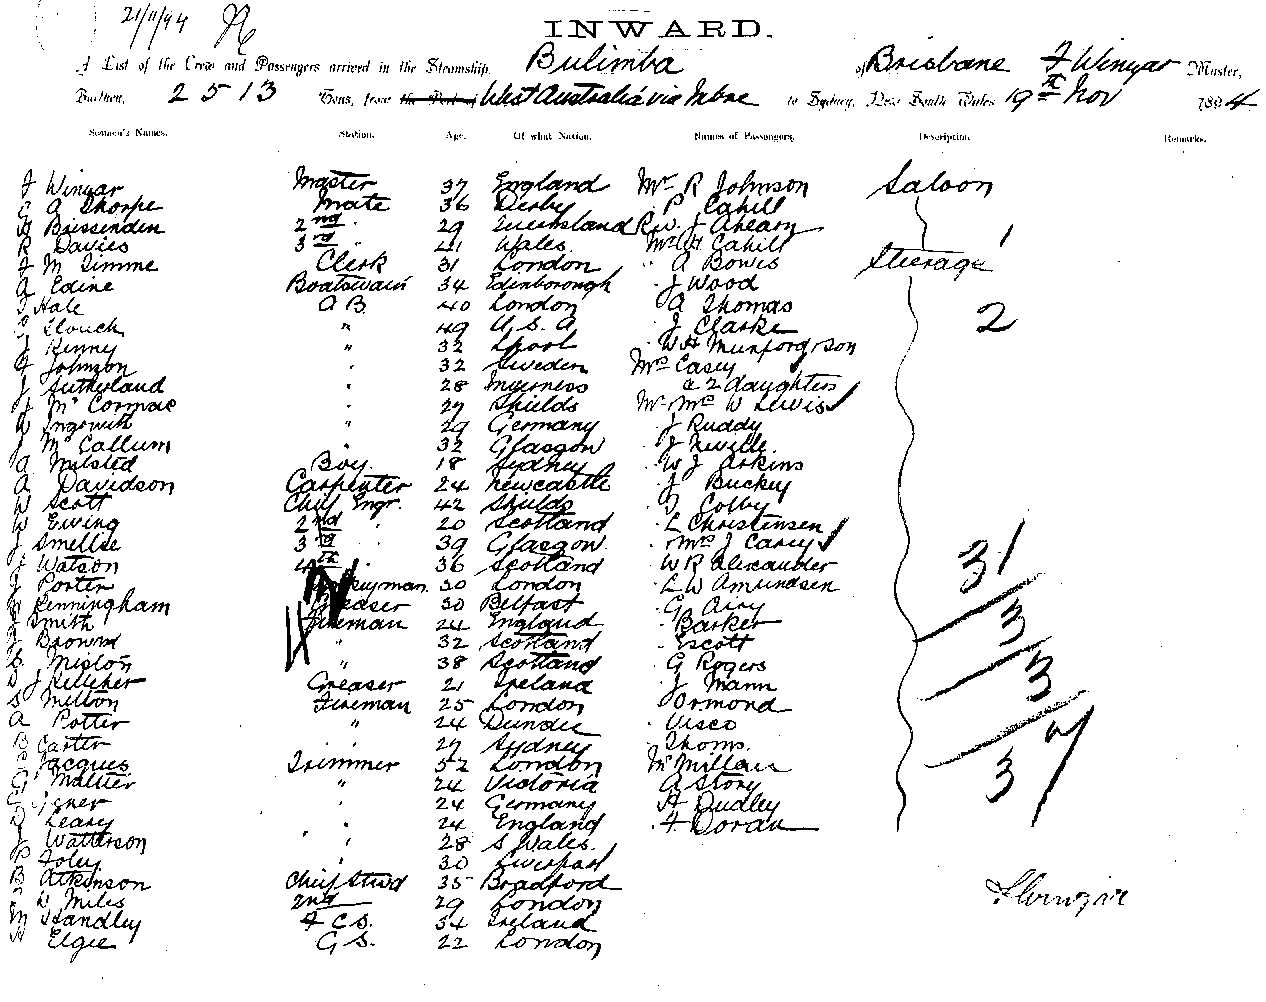 21/11/94
INWARD.
A List of the Crew and Passengers arrived in the Steamship Bulimba of Brisbane F Winyar Master,
Burthen, 2513 Tons, from the Port of West Australia via Mbne to Sydney, New South Wales 19th Nov 1894
Seamen's Names. Station. Age. Of what Nation. Names of Passengers. Description. Remarks.
F Winyar Master 37 England Mr R Johnson Saloon
A Thorpe Mate 36 Derby P Cahill
Bressenden 2nd " 29 Queensland Rev J Ahearn
R Davies 3rd " 41 Wales Mr W Cahill 1
F M Timme Clerk 31 London " A Bowis Steerage
A Edine Boatswain 34 Edinborough " J Wood
Hale A B. 40 London " A Thomas 2
Slouch " 49 U.S.A J Clarke
J Kenny " 32 Lpool " W H
Johnson " 32 Sweden Mrs Casey
J Sutherland " 28 Inverness & 2 daughters
McCormac " 27 Shields Mr Mrs W Lewis
" 29 Germany J Ruddy
J McCallum " 32 Glasgow J Neville
A Milsted Boy. 18 Sydney W J Askins
A Davidson Carpenter 24 Newcastle J Buckey
W Scott Chief Engr. 42 Shields Colby
W Ewing 2nd " 20 Scotland L Christensen
J Smellie 3rd " 39 Glasgow Mrs J Casey 31
J Watson 4th " 36 Scotland W R Alexander
J Porter 30 London L W Amundsen
Kenningham Greaser 30 Belfast G Airy 3
J Smith Fireman 24 England Barker
J Browne " 32 Scotland Escott
" 38 Scotland G Rogers 3
D J Kelleher Greaser 21 Ireland J Mann
S Melton Fireman 25 London Ormond
A Potter " 24 Dundee Visco
B Carter " 27 Sydney Thoms. 37
Jacques Trimmer 52 London McMillan
G " 24 Victoria A Story
" 24 Germany H Dudley
D Leary " 24 England F Doran
J Watterson " 28 S Wales
P Foley " 30 Liverpool
B Atkinson Chief Stwd 35 Bradford
W Miles 2nd 29 London
M Handley F C S. 34 Ireland
Elgie G S. 22 London